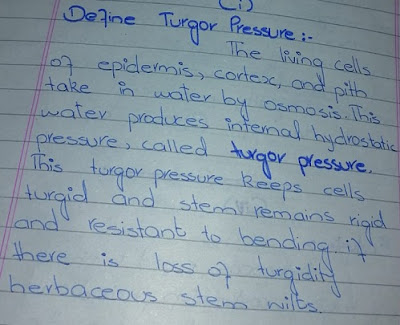 (i)
Define Turgor Pressure:-
The living cells
of epidermis, cortex, and pith
take in water by osmosis. This
water produces internal hydrostatic
pressure, called turgor pressure.
This turgor pressure keeps cells
turgid and stem remains rigid
and resistant to bending. if
there is loss of turgidity
herbaceous stem wilts.